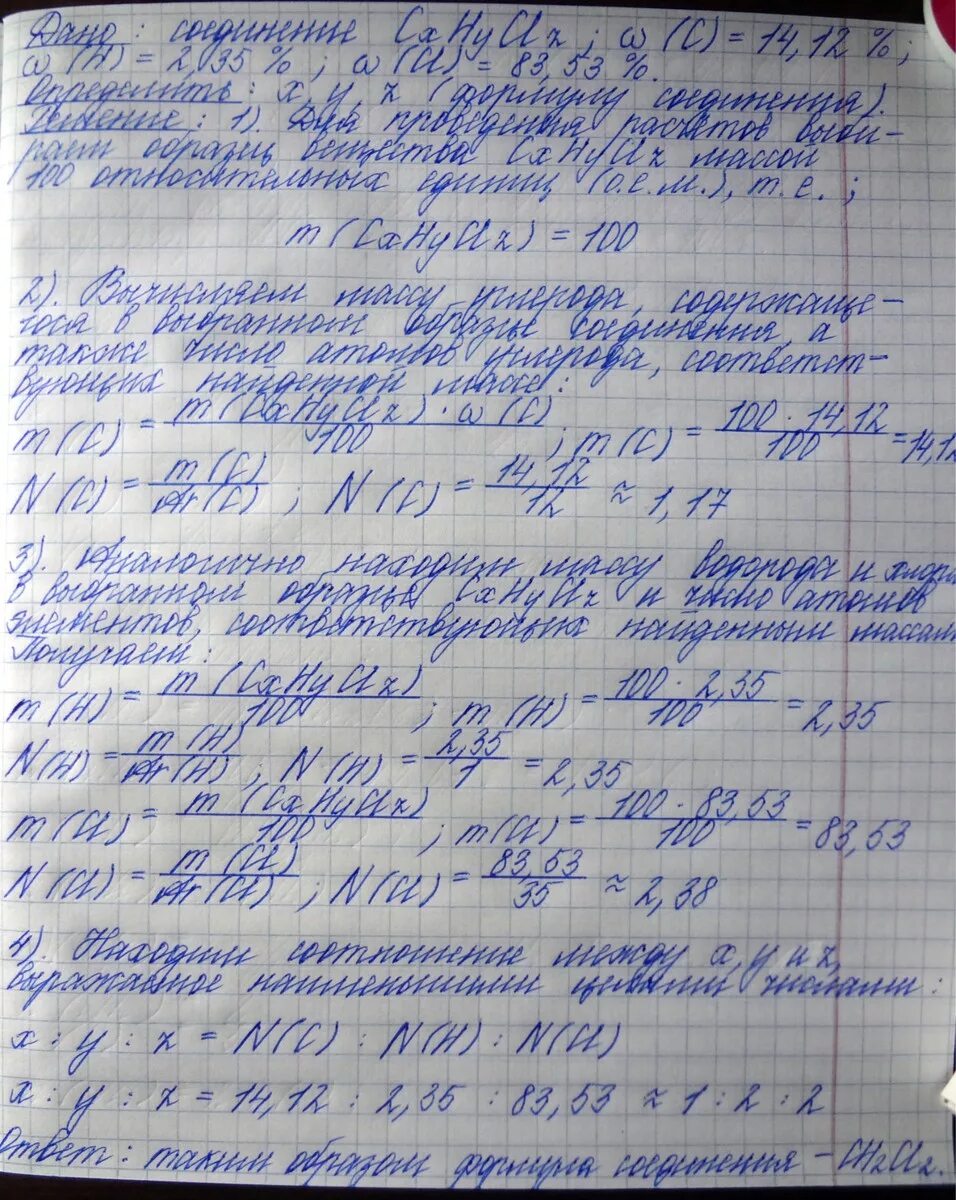 Дано: соединение CxHyClz; ω(C) = 14,12 %;
ω(H) = 2,35 %; ω(Cl) = 83,53 %.
Определить: x, y, z (формулу соединения).
Решение: 1). Для проведения расчётов выби-
раем образец вещества CxHyClz массой
100 относительных единиц (о.е.м.), т.е.;
m (CxHyClz) = 100
2). Вычисляем массу углерода, содержаще-
гося в выбранном образце соединения, а
также число атомов углерода, соответст-
вующих найденной массе:
m(C) = m(CxHyClz) · ω(C) / 100 ; m(C) = 100 · 14,12 / 100 = 14,12
N(C) = m(C) / Ar(C) ; N(C) = 14,12 / 12 ≈ 1,17
3). Аналогично находим массу водорода и хлора
в выбранном образце CxHyClz и число атомов
элементов, соответствующих найденным массам.
Получаем:
m(H) = m(CxHyClz) / 100 ; m(H) = 100 · 2,35 / 100 = 2,35
N(H) = m(H) / Ar(H) ; N(H) = 2,35 / 1 = 2,35
m(Cl) = m(CxHyClz) / 100 ; m(Cl) = 100 · 83,53 / 100 = 83,53
N(Cl) = m(Cl) / Ar(Cl) ; N(Cl) = 83,53 / 35 ≈ 2,38
4). Находим соотношение между x, y и z,
выражаемое наименьшими целыми числами:
x : y : z = N(C) : N(H) : N(Cl)
x : y : z = 14,12 : 2,35 : 83,53 ≈ 1 : 2 : 2
Ответ: таким образом формула соединения – CH2Cl2.